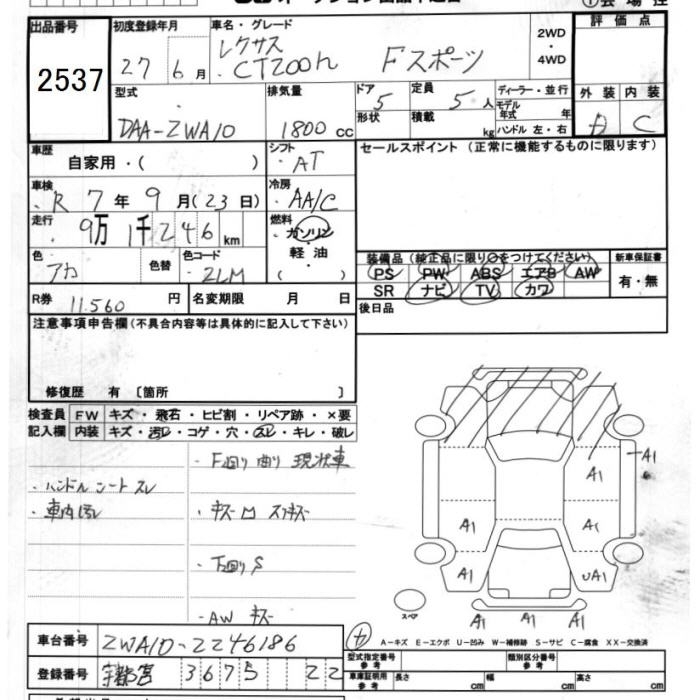 出品番号
2537
初度登録年月
27 6月
車名・グレード
レクサス
CT200h Fスポーツ
2WD
・
4WD
評価点
外装 内装
C
型式
DAA-ZWA10
排気量
1800cc
ドア
5
形状
定員
5人
積載
kg
ディーラー・並行
モデル年式 年
ハンドル 左・右
車歴
自家用・( )
シフト
・AT
車検
・R 7年 9月(23日)
冷房
・AA/C
走行
・9万1千246km
燃料
・ガソリン
・軽油
・( )
色
アカ
色替
色コード
・2LM
セールスポイント (正常に機能するものに限ります)
装備品(純正品に限り○をつけてください)
PS PW ABS エアB AW
SR ナビ TV カワ
新車保証書
有・無
R券 11.560円
名変期限 月 日
後日品
注意事項申告欄(不具合内容等は具体的に記入して下さい)
修復歴 有 〔箇所 〕
検査員記入欄
FW キズ・飛石・ヒビ割・リペア跡・×要
内装 キズ・汚レ・コゲ・穴・スレ・キレ・破レ
・F回り曲り 現状車
・ハンドルシートスレ
・車内汚レ
・キズ凹 スリキズ
・下回りS
・AW キズ
A1
A1
A1
A1
A1
A1
UA1
A1 A1 A1
スペア
A-キズ E-エクボ U-凹み W-補修跡 S-サビ C-腐食 XX-交換済
車台番号 ZWA10-2246186
登録番号 宇都宮 3675 22
型式指定番号 参考
類別区分番号 参考
車庫証明用 参考
長さ cm
幅 cm
高さ cm